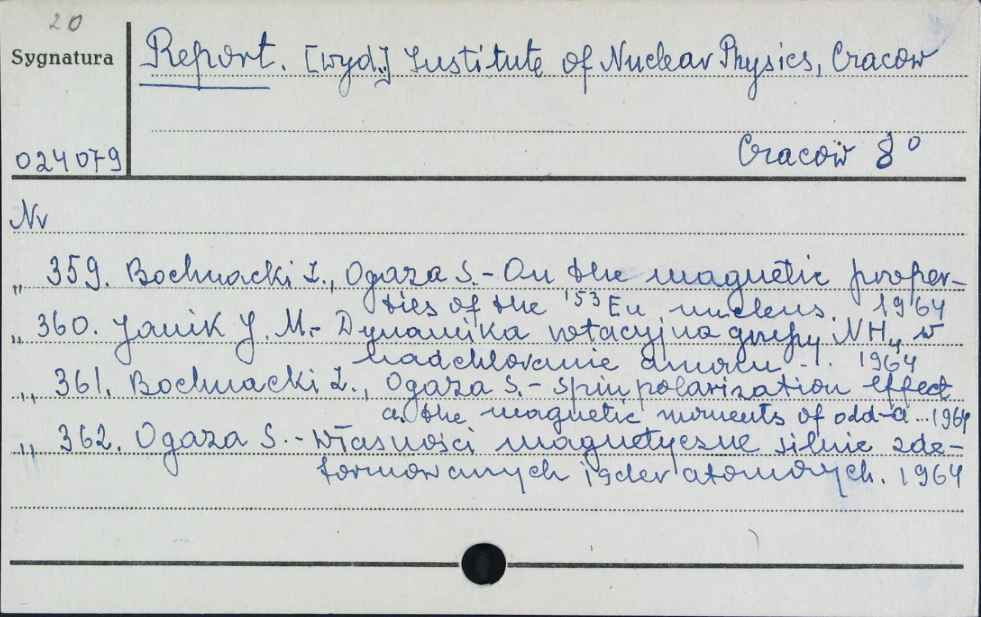 20
Sygnatura
Report. [wyd.] Institute of Nuclear Physics, Cracow
024079
Cracow 8°
Nr
„ 359. Bochnacki Z., Ogaza S. - On the magnetic proper-
ties of the ¹⁵³Eu nucleus. 1964
„ 360. Janik J. M. - Dynamika rotacyjna grupy NH₄ w
nadchloranie amonu... 1964
„ 361. Bochnacki Z., Ogaza S. - Spin polarization effect
a. the magnetic moments of odd-a... 1964
„ 362. Ogaza S. - Własności magnetyczne silnie zde-
formowanych jąder atomowych. 1964